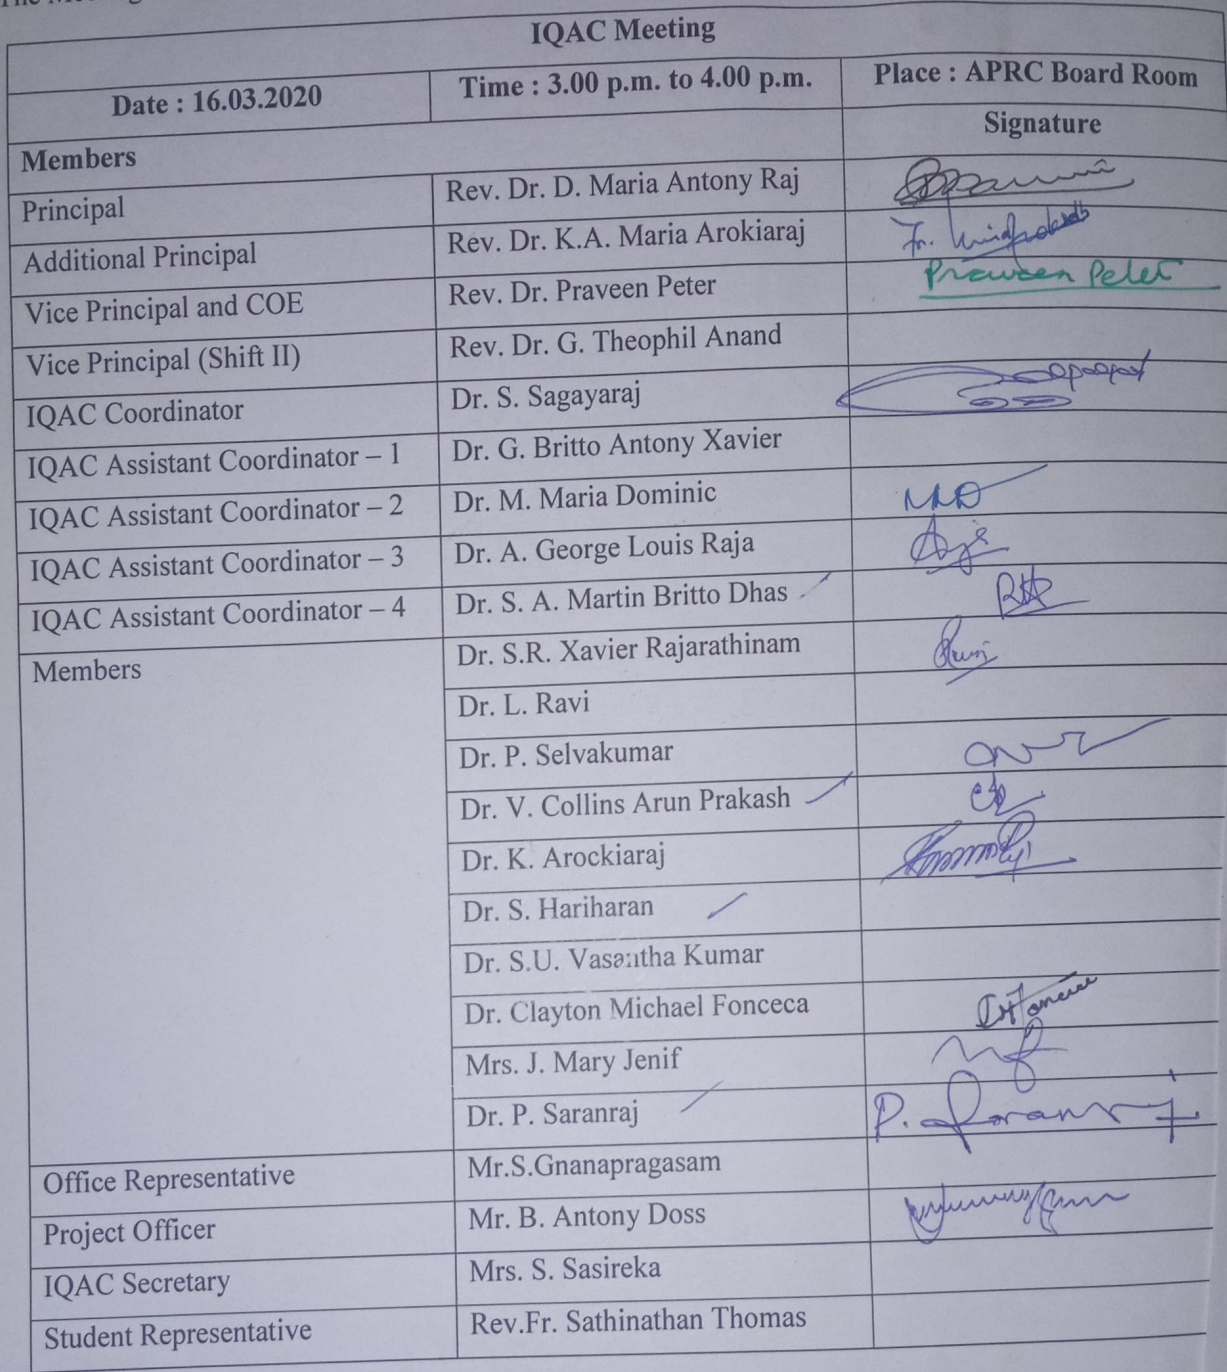 IQAC Meeting
Date : 16.03.2020 Time : 3.00 p.m. to 4.00 p.m. Place : APRC Board Room
Members Signature
Principal Rev. Dr. D. Maria Antony Raj
Additional Principal Rev. Dr. K.A. Maria Arokiaraj Fr.
Vice Principal and COE Rev. Dr. Praveen Peter Praveen Peter
Vice Principal (Shift II) Rev. Dr. G. Theophil Anand
IQAC Coordinator Dr. S. Sagayaraj
IQAC Assistant Coordinator – 1 Dr. G. Britto Antony Xavier
IQAC Assistant Coordinator – 2 Dr. M. Maria Dominic
IQAC Assistant Coordinator – 3 Dr. A. George Louis Raja
IQAC Assistant Coordinator – 4 Dr. S. A. Martin Britto Dhas
Members Dr. S.R. Xavier Rajarathinam
Dr. L. Ravi
Dr. P. Selvakumar
Dr. V. Collins Arun Prakash
Dr. K. Arockiaraj
Dr. S. Hariharan
Dr. S.U. Vasantha Kumar
Dr. Clayton Michael Fonceca
Mrs. J. Mary Jenif
Dr. P. Saranraj P. Saranraj
Office Representative Mr.S.Gnanapragasam
Project Officer Mr. B. Antony Doss
IQAC Secretary Mrs. S. Sasireka
Student Representative Rev.Fr. Sathinathan Thomas